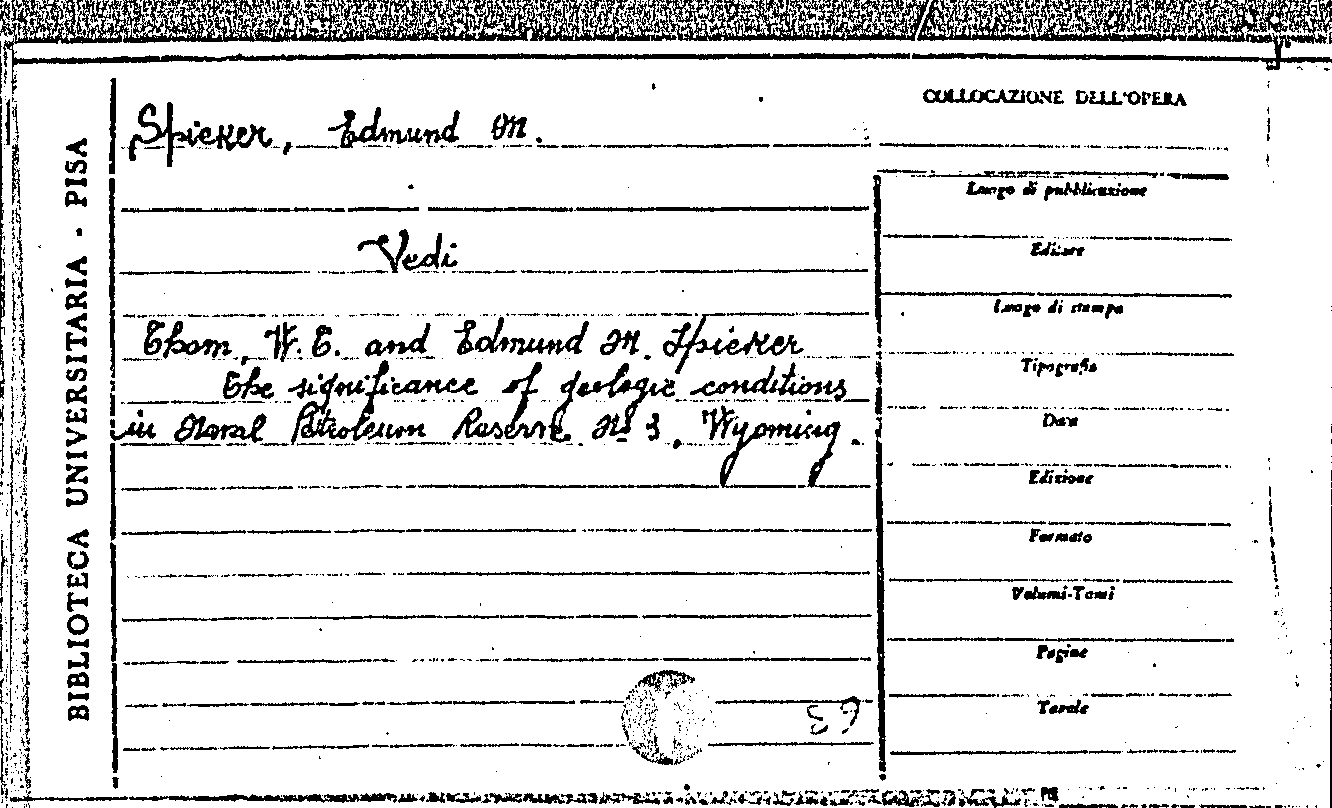 BIBLIOTECA UNIVERSITARIA - PISA
Spieker, Edmund M.
Vedi
Thom, W. E. and Edmund M. Spieker
The significance of geologic conditions
in Naval Petroleum Reserve Nº 3, Wyoming.
COLLOCAZIONE DELL'OPERA
Luogo di pubblicazione
Editore
Luogo di stampa
Tipografia
Data
Edizione
Formato
Volumi-Tomi
Pagine
Tavole